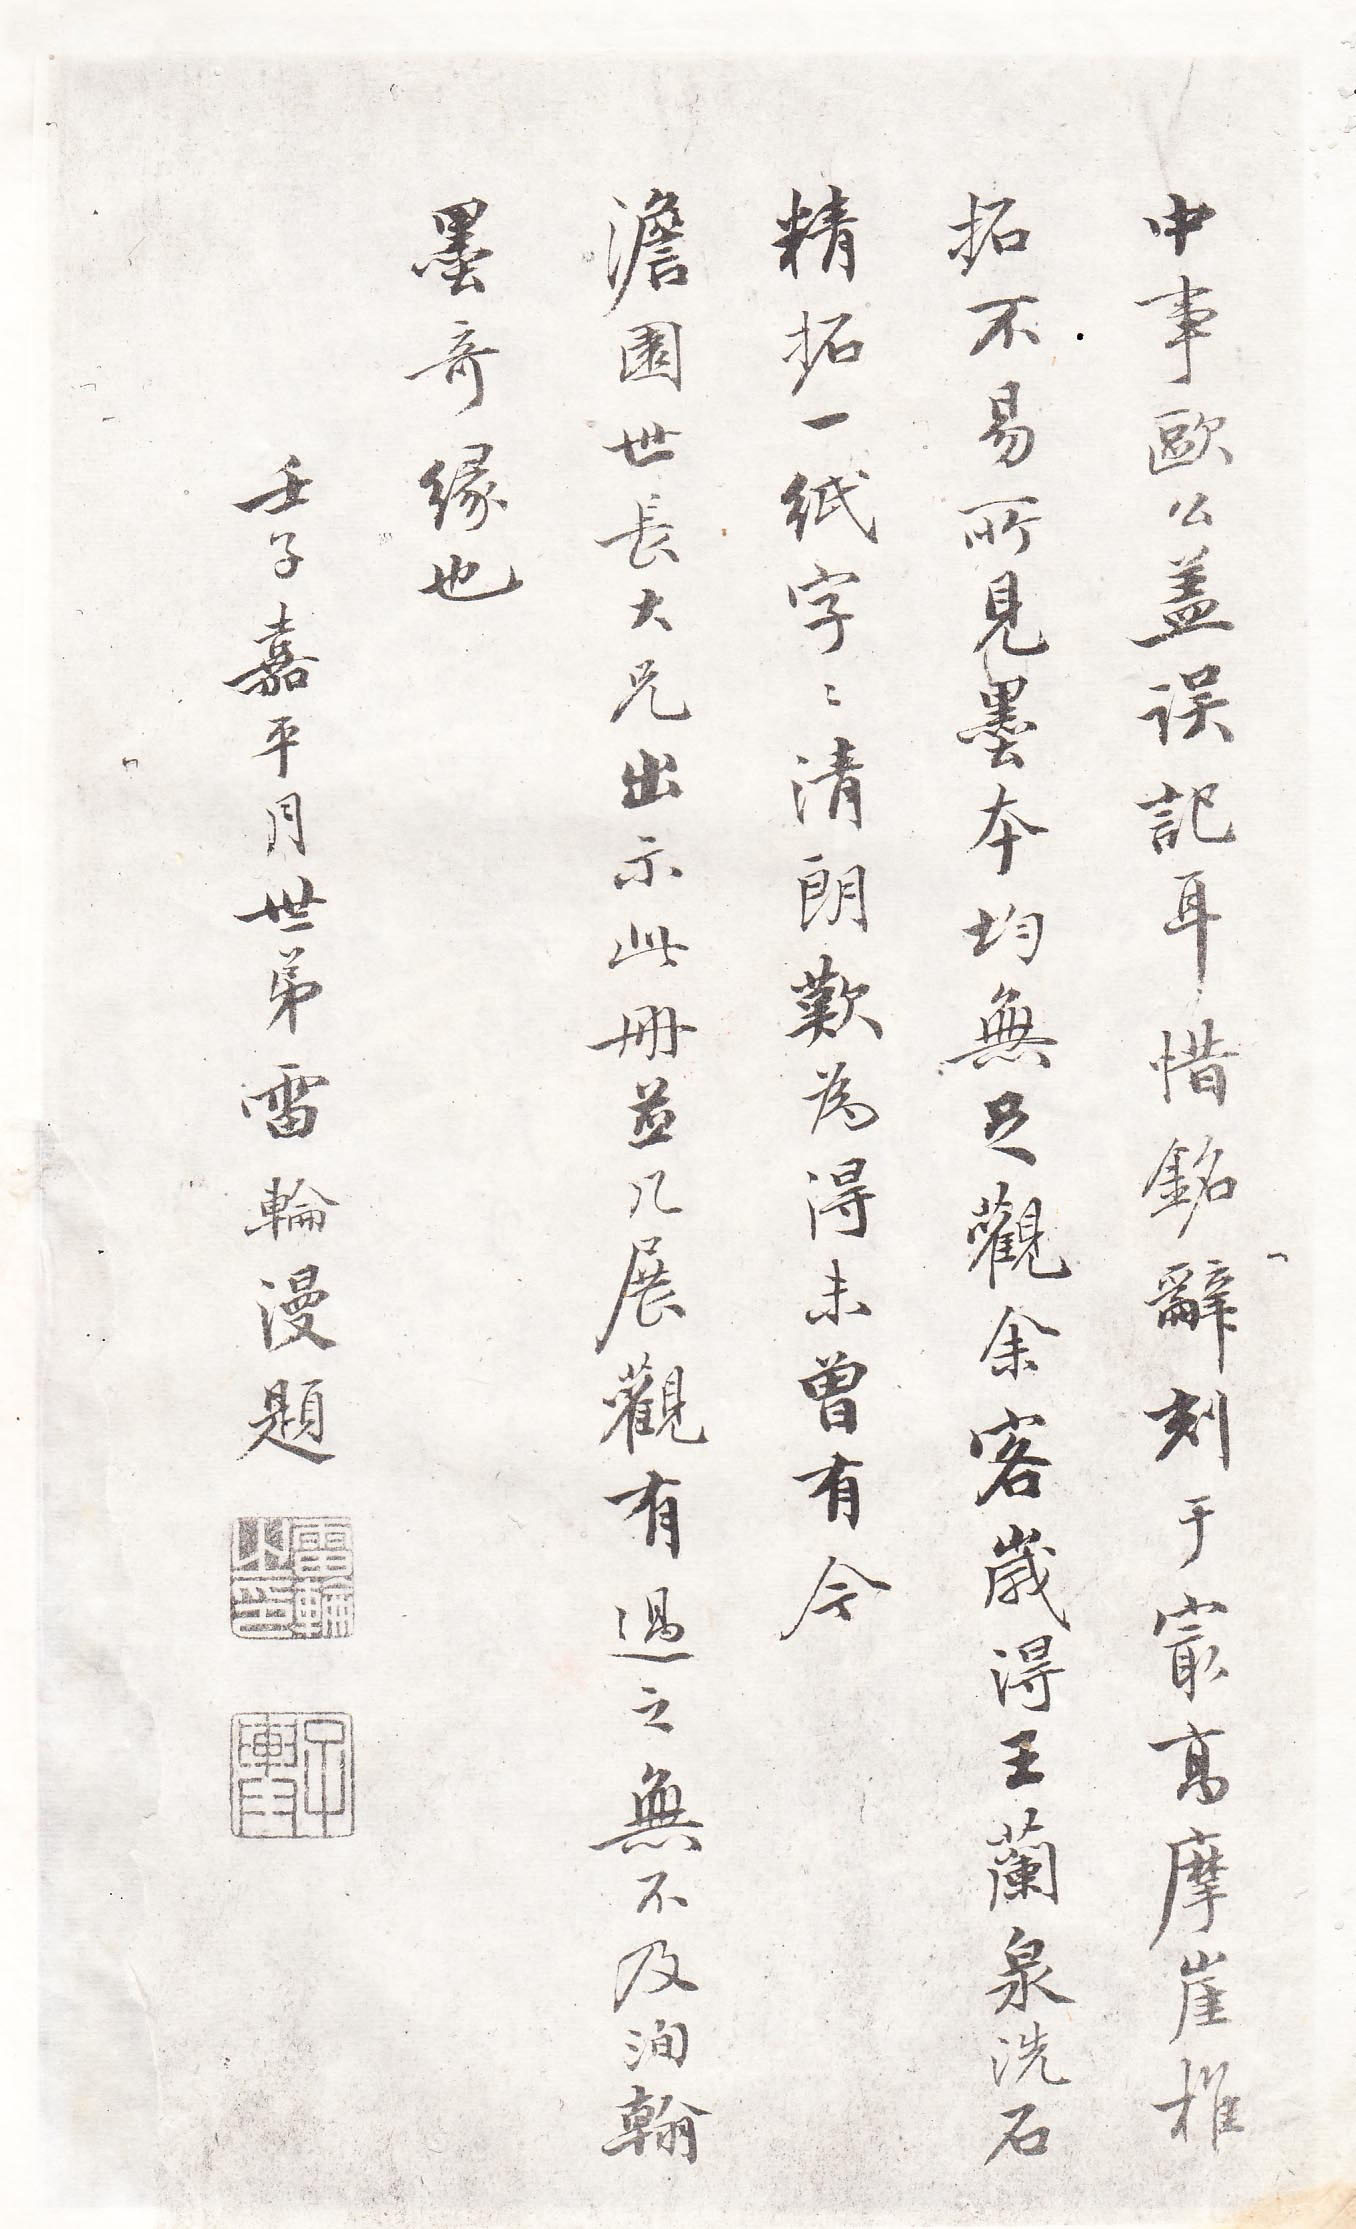 中事歐公盖误記耳惜銘辭刻于㝡高摩崖椎
拓不易所見墨本均無足觀余客歲得王蘭泉洗石
精拓一紙字〻清朗歎為得未曾有今
澹園世長大兄出示此冊並几展觀有過之無不及洵翰
墨奇緣也
壬子嘉平月世弟雷輪漫題
雷輪之印